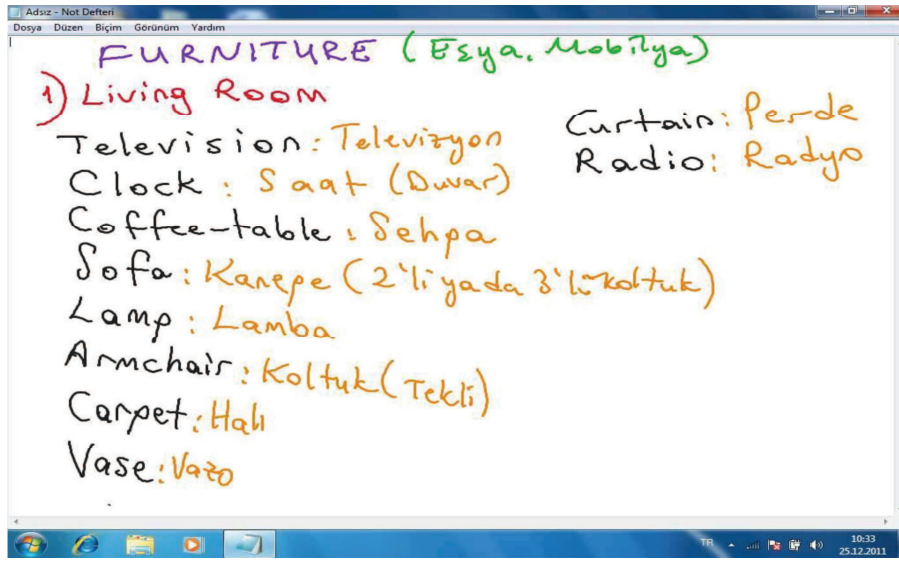 Adsız - Not Defteri
Dosya Düzen Biçim Görünüm Yardım
FURNITURE (Eşya, Mobilya)
1) Living Room
Television: Televizyon
Clock: Saat (Duvar)
Coffee-table: Sehpa
Sofa: Kanepe (2'li yada 3'lü koltuk)
Lamp: Lamba
Armchair: Koltuk (Tekli)
Carpet: Halı
Vase: Vazo
Curtain: Perde
Radio: Radyo
TR
10:33
25.12.2011